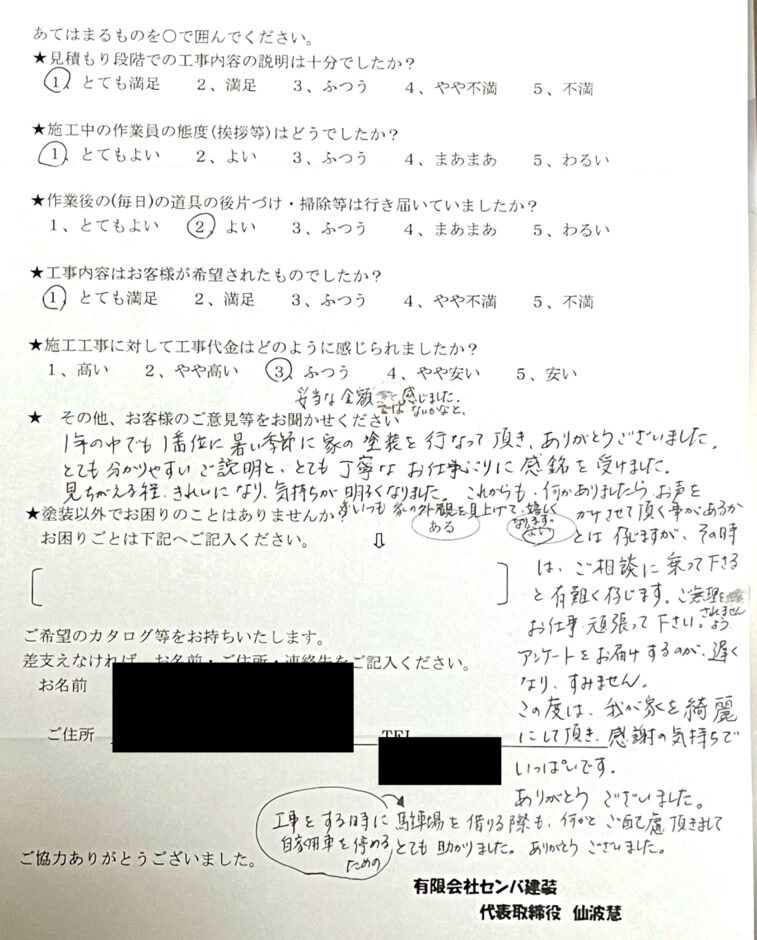 あてはまるものを〇で囲んでください。
★見積もり段階での工事内容の説明は十分でしたか？
1、とても満足 2、満足 3、ふつう 4、やや不満 5、不満
★施工中の作業員の態度(挨拶等)はどうでしたか？
1、とてもよい 2、よい 3、ふつう 4、まあまあ 5、わるい
★作業後の(毎日)の道具の後片づけ・掃除等は行き届いていましたか？
1、とてもよい 2、よい 3、ふつう 4、まあまあ 5、わるい
★工事内容はお客様が希望されたものでしたか？
1、とても満足 2、満足 3、ふつう 4、やや不満 5、不満
★施工工事に対して工事代金はどのように感じられましたか？
1、高い 2、やや高い 3、ふつう 4、やや安い 5、安い
妥当な金額 感じました。
ではないかなと、
★ その他、お客様のご意見等をお聞かせください
1年の中でも1番位に暑い季節に家の塗装を行なって頂き、ありがとうございました。
とても分かりやすいご説明と、とても丁寧なお仕事ぶりに感銘を受けました。
見ちがえる程、きれいになり、気持ちが明るくなりました。これからも、何かありましたらお声を
いつも家の外観を見上げて、嬉しく
なります。
★塗装以外でお困りのことはありませんか？ ある ない
かけさせて頂く事があるか
お困りごとは下記へご記入ください。 ⇩
とは存じますが、その時
は、ご相談に乗って下さる
と有難く存じます。ご無理を
されません
よう
お仕事頑張って下さい。
ご希望のカタログ等をお持ちいたします。
アンケートをお届けするのが、遅く
差支えなければ、お名前・ご住所・連絡先をご記入ください。
なり、すみません。
お名前
この度は、我が家を綺麗
ご住所 TEL
にして頂き、感謝の気持ちで
いっぱいです。
ありがとうございました。
工事をする時に
自家用車を停める
ための
駐車場を借りる際も、何かとご配慮頂きまして
とても助かりました。ありがとうございました。
ご協力ありがとうございました。
有限会社センバ建装
代表取締役 仙波慧